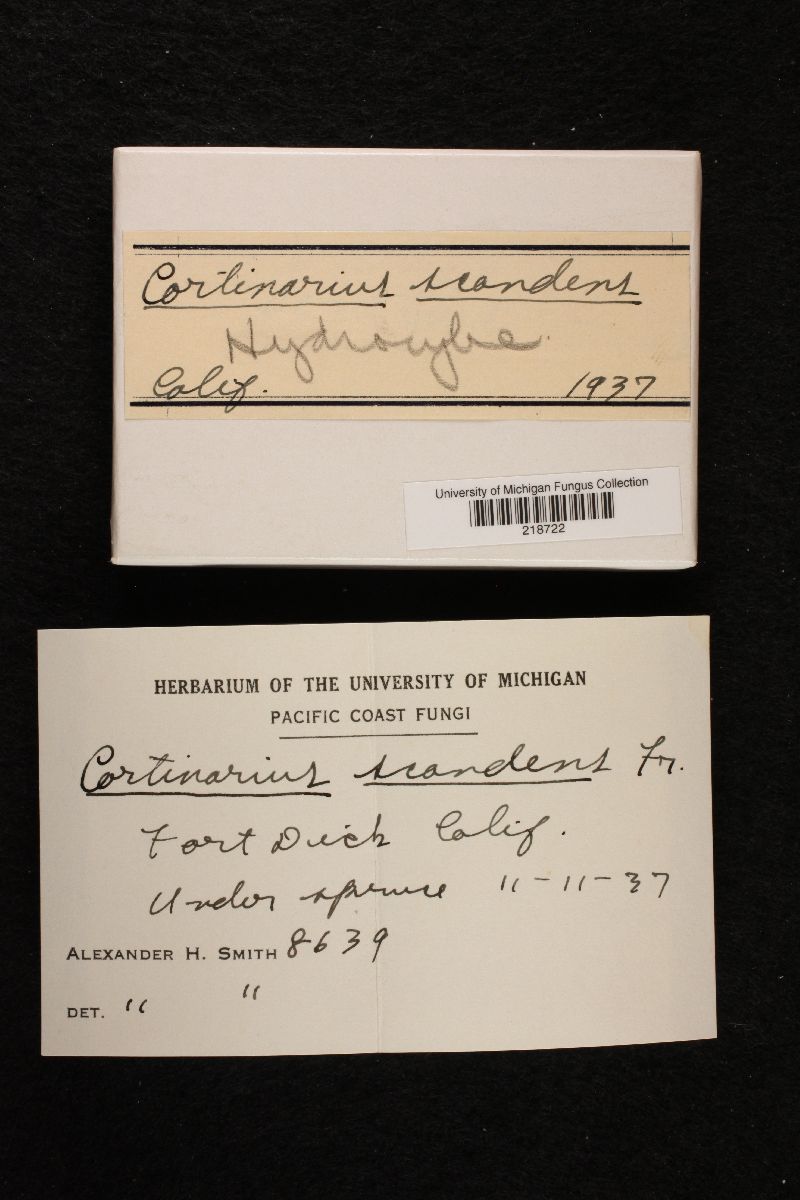 Cortinarius scandens
Hydrocybe.
Calif. 1937
University of Michigan Fungus Collection
218722
HERBARIUM OF THE UNIVERSITY OF MICHIGAN
PACIFIC COAST FUNGI
Cortinarius scandens Fr.
Fort Dick Calif.
Under spruce 11-11-37
ALEXANDER H. SMITH 8639
DET. " "